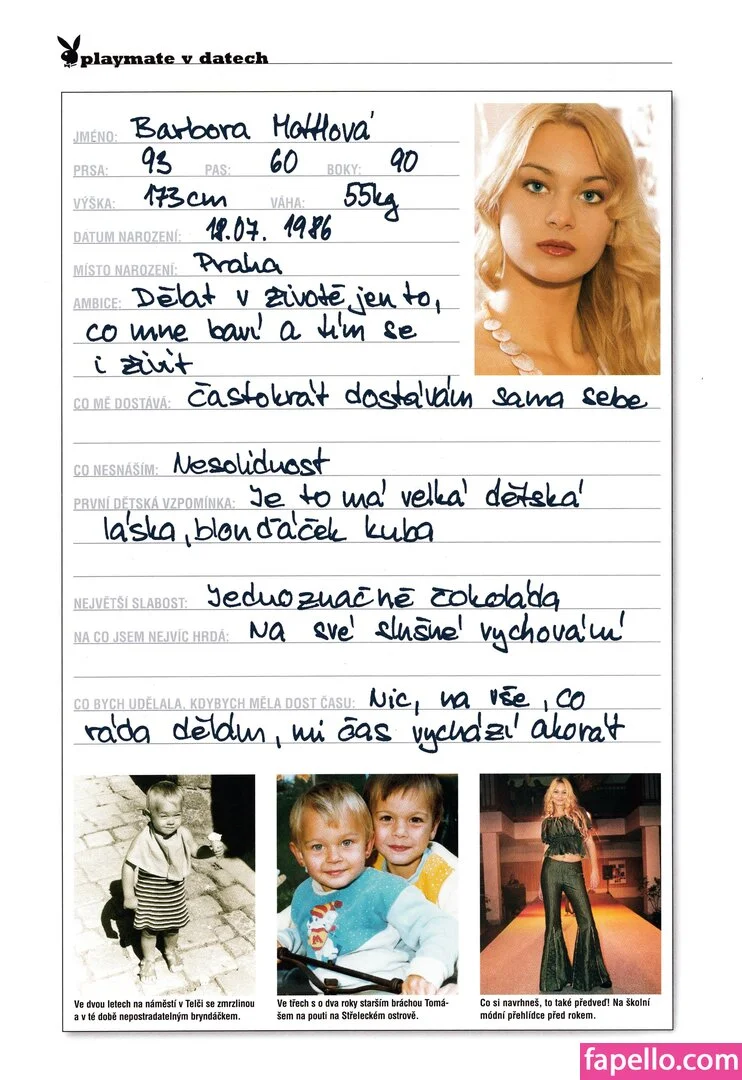 playmate v datech
JMÉNO: Barbora Mottlová
PRSA: 93 PAS: 60 BOKY: 90
VÝŠKA: 173cm VÁHA: 55kg
DATUM NAROZENÍ: 18.07. 1986
MÍSTO NAROZENÍ: Praha
AMBICE: Dělat v životě jen to,
co mne baví a tím se
i živit
CO MĚ DOSTÁVÁ: častokrát dostávám sama sebe
CO NESNÁŠÍM: Nesolidnost
PRVNÍ DĚTSKÁ VZPOMÍNKA: Je to má velká dětská
láska, blonďáček kuba
NEJVĚTŠÍ SLABOST: Jednoznačně čokoláda
NA CO JSEM NEJVÍC HRDÁ: Na své slušné vychování
CO BYCH UDĚLALA, KDYBYCH MĚLA DOST ČASU: Nic, na vše, co
ráda dělám, mi čas vychází akorát
Ve dvou letech na náměstí v Telči se zmrzlinou
a v té době nepostradatelným bryndáčkem.
Ve třech s o dva roky starším bráchou Tomá-
šem na pouti na Střeleckém ostrově.
Co si navrhneš, to také předveď! Na školní
módní přehlídce před rokem.
fapello.com